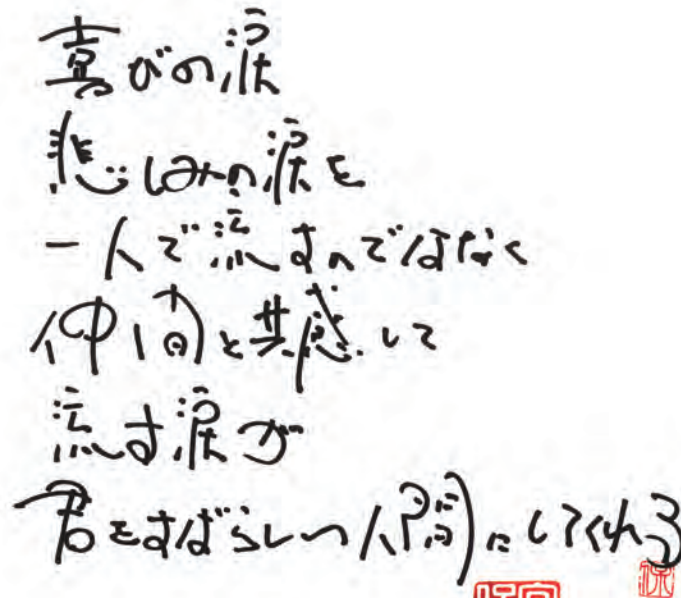 喜びの涙
悲しみの涙を
一人で流すのではなく
仲間と共感して
流す涙が
君をすばらしい人間にしてくれる
保